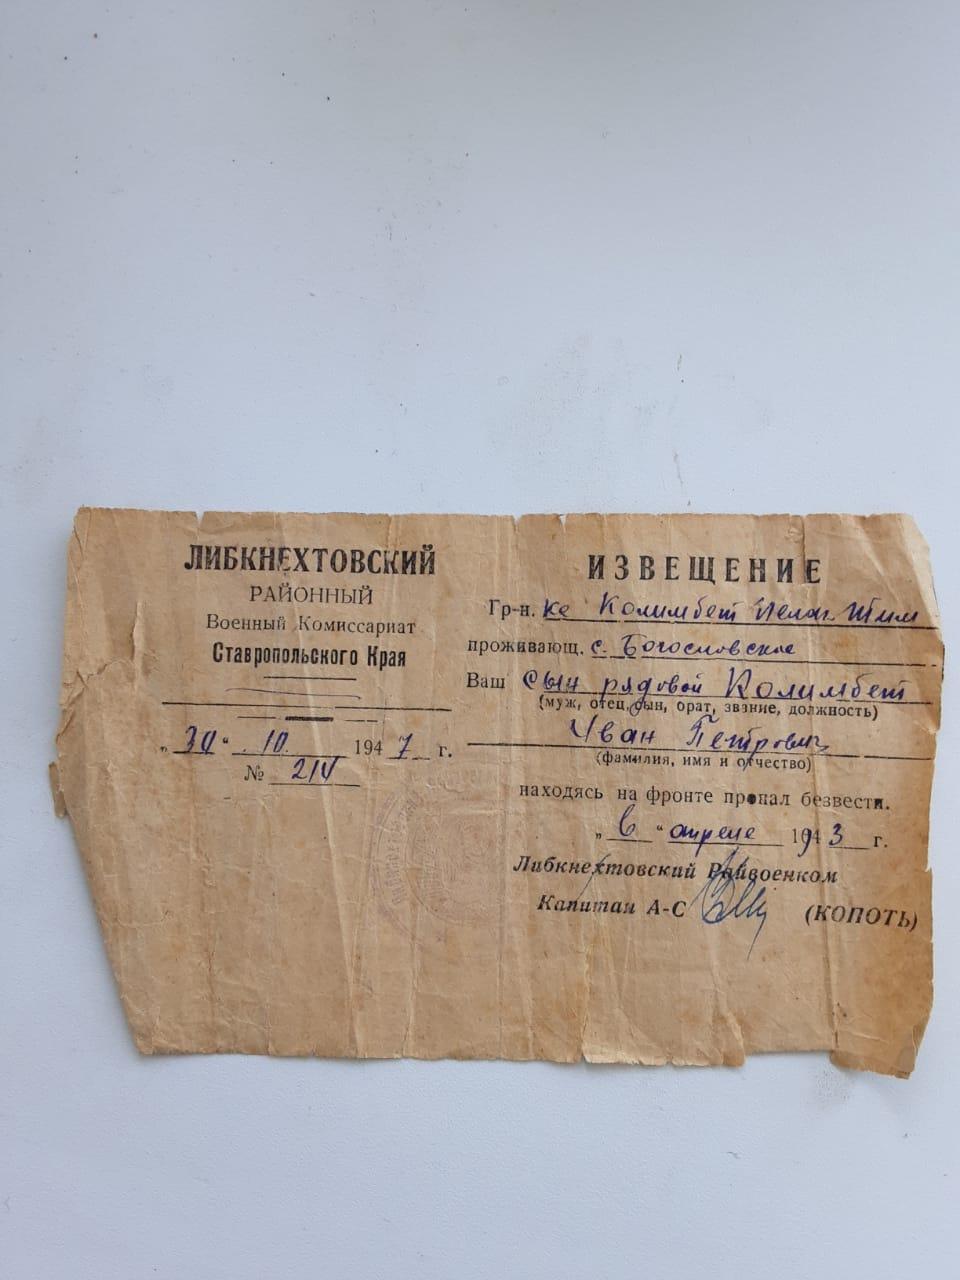 ЛИБКНЕХТОВСКИЙ
РАЙОННЫЙ
Военный Комиссариат
Ставропольского Края
„30“ 10. 1947 г.
№ 214
ИЗВЕЩЕНИЕ
Гр-н. ке Колимбет Пелаг. Тим
проживающ. с. Богословское
Ваш сын рядовой Колимбет
(муж, отец, сын, брат, звание, должность)
Иван Петрович
(фамилия, имя и отчество)
находясь на фронте пропал безвести.
„ в “ апреле 1943 г.
Либкнехтовский Райвоенком
Капитан А-С (КОПОТЬ)